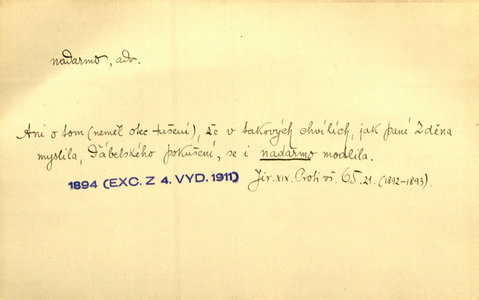 nadarmo, adv.
Ani o tom (neměl otec tušení), že v takových chvílích, jak paní Zděna
myslila, Ďábelského pokušení, se i nadarmo modlila.
1894 (EXC. Z 4. VYD. 1911) Jir. XIX. Proti vš. 65. 21. (1892-1893).